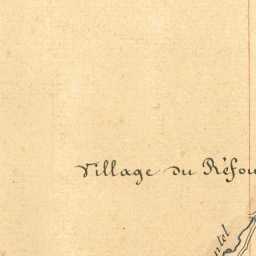 Village du Réfou
ntel